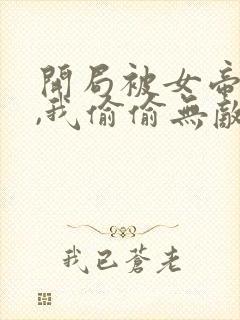 開局被女帝
,我偷偷無敵
我已蒼老